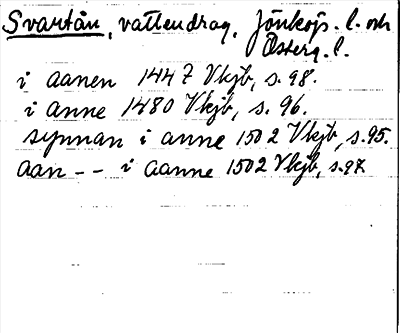 Svartån, vattendrag, Jönköp. l. och
Österg. l.
i aanen 1447 Vkjb, s. 98.
i anne 1480 Vkjb, s. 96.
synnan i anne 1502 Vkjb, s. 95.
aan -- i aanne 1502 Vkjb, s. 97.